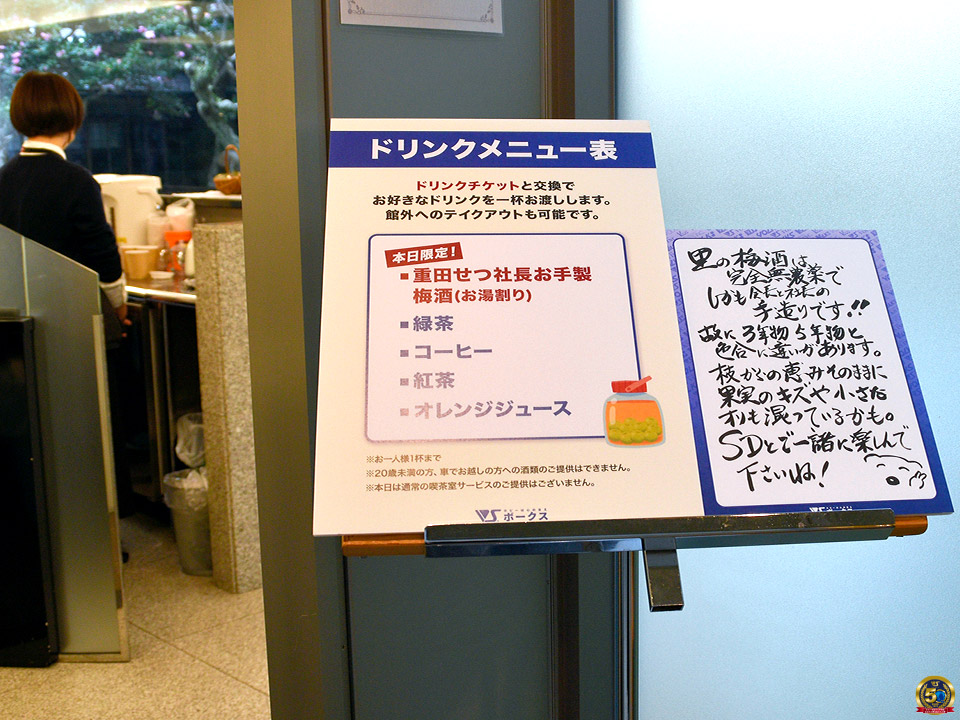 ドリンクメニュー表
ドリンクチケットと交換で
お好きなドリンクを一杯お渡しします。
館外へのテイクアウトも可能です。
本日限定!
■重田せつ社長お手製
梅酒(お湯割り)
■緑茶
■コーヒー
■紅茶
■オレンジジュース
※お一人様1杯まで
※20歳未満の方、車でお越しの方への酒類のご提供はできません。
※本日は通常の喫茶室サービスのご提供はございません。
VS ボークス
里の梅酒は
完全無農薬で
しかも会長と社長の
手造りです!!
故に3年物5年物と
色合に違いがあります。
枝からの恵みそのままに
果実のキズや小さな
オリも混っているかも。
SDとで一緒に楽しんで
下さいね!
50